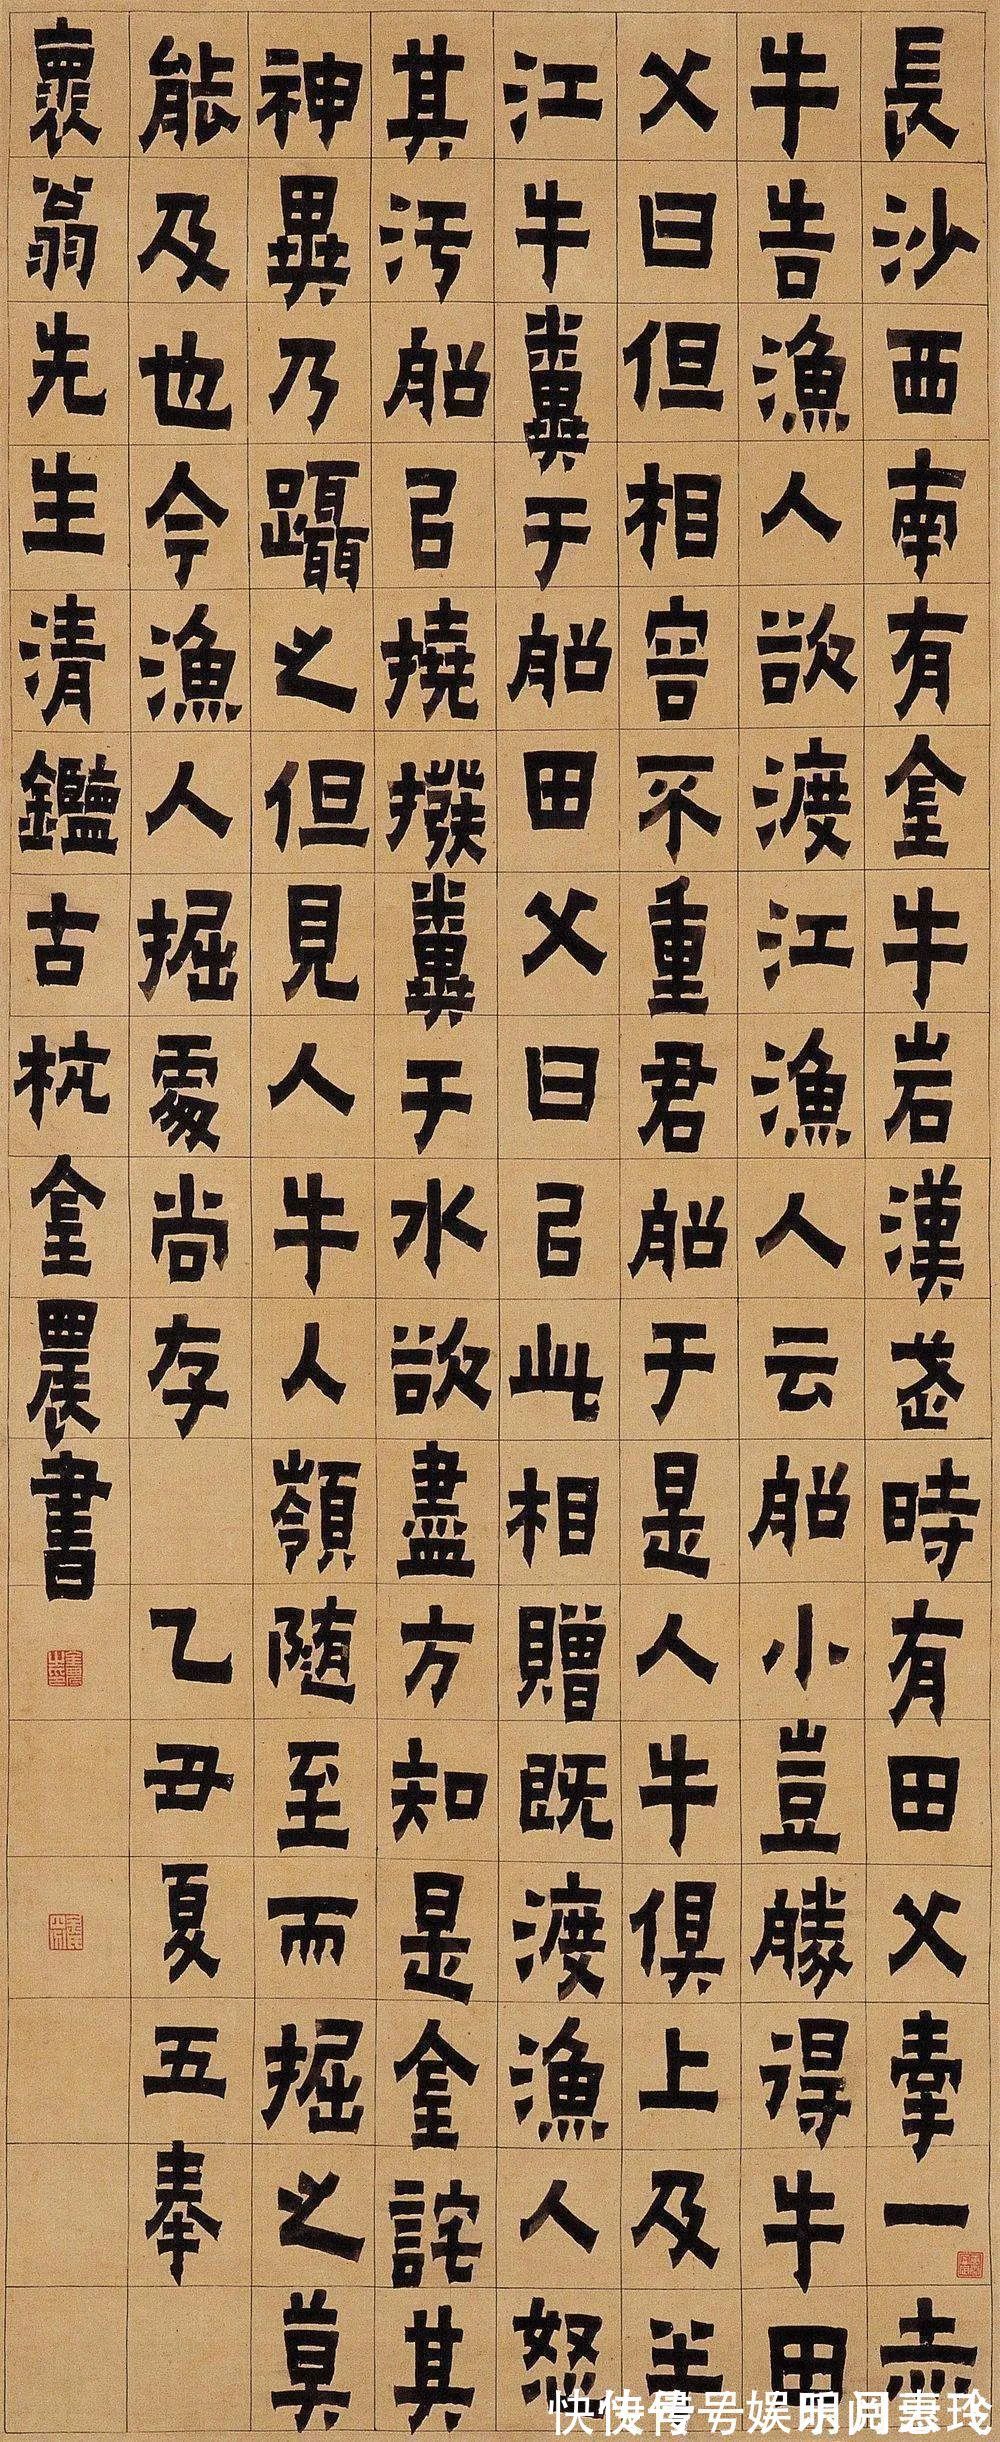 長沙西南有金牛岩漢武時有田父牽一赤
牛告漁人欲渡江漁人云船小豈勝得牛田
父曰但相容不重君船于是人牛俱上及半
江牛糞于船田父曰㠯此相贈既渡漁人怒
其污船㠯撓撥糞于水欲盡方知是金詫其
神異乃躡之但見人牛入嶺随至而掘之莫
能及也今漁人掘處尚存 乙丑夏五奉
褱翁先生清鑑古杭金農書